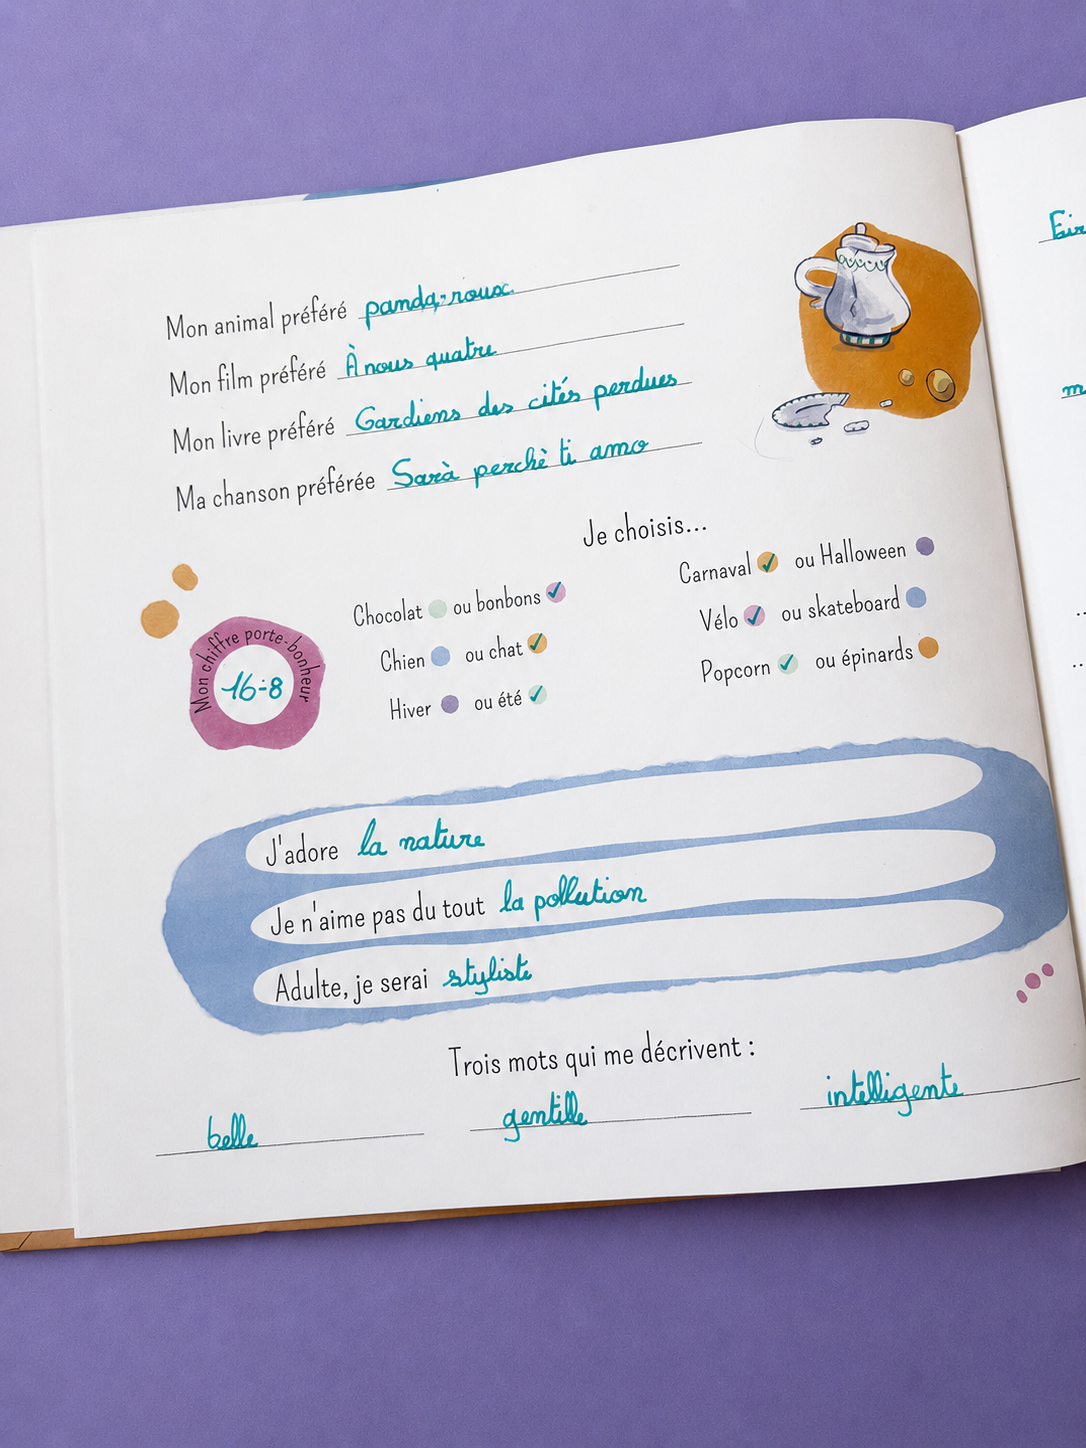 Mon animal préféré panda-roux
Mon film préféré À nous quatre
Mon livre préféré Gardiens des cités perdues
Ma chanson préférée Sarà perchè ti amo
Je choisis...
Chocolat ou bonbons ✓
Chien ou chat ✓
Hiver ou été ✓
Carnaval ✓ ou Halloween
Vélo ✓ ou skateboard
Popcorn ✓ ou épinards
Mon chiffre porte-bonheur
16-8
J'adore la nature
Je n'aime pas du tout la pollution
Adulte, je serai styliste
Trois mots qui me décrivent :
belle gentille intelligente